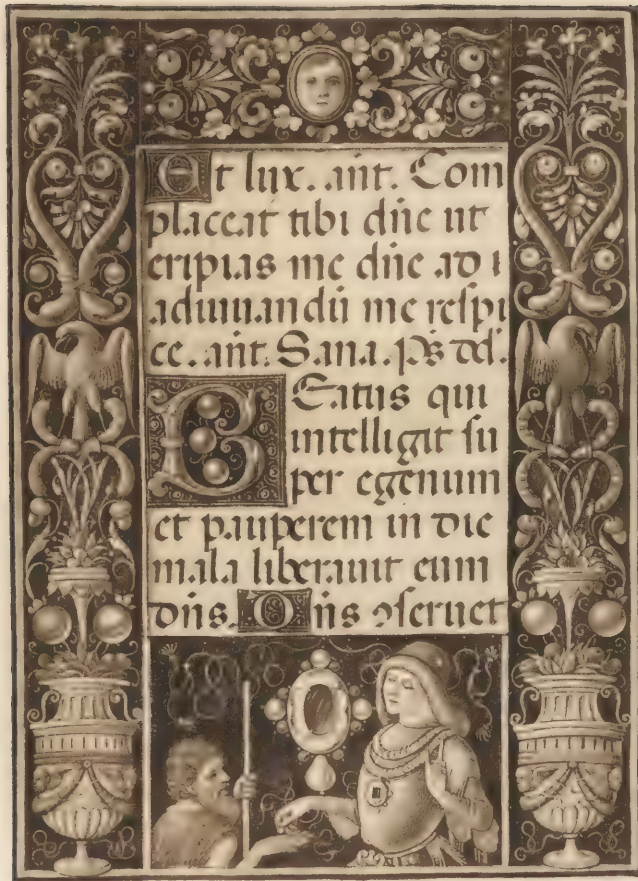 Et lux. ant. Com
placeat tibi dn̄e ut
eripias me dn̄e ad i
adiuuandū me respi
ce. ant. Sana. Ps dd̄.
BEatus qui
intelligit su
per egenum
et pauperem in die
mala liberauit eum
dn̄s. Dn̄s ꝯseruet